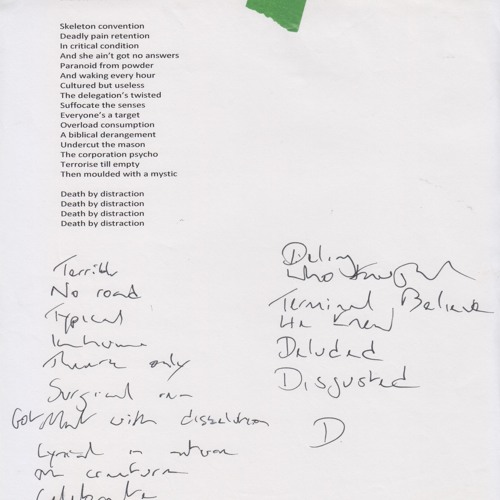 Skeleton convention
Deadly pain retention
In critical condition
And she ain't got no answers
Paranoid from powder
And waking every hour
Cultured but useless
The delegation's twisted
Suffocate the senses
Everyone's a target
Overload consumption
A biblical derangement
Undercut the mason
The corporation psycho
Terrorise till empty
Then moulded with a mystic
Death by distraction
Death by distraction
Death by distraction
Death by distraction
Terrible
No road
Typical
only
Surgical
with
Lyrical
Who
Terminal Believe
He knew
Deluded
Disgusted
D